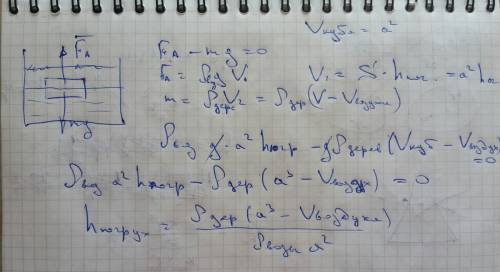 Vкуба = a²
F_A
F_A - mg = 0
F_A = ρвg V₁ V₁ = S · hпог. = a² hп
m = ρдер V₂ = ρдер (V - Vвоздуха)
mg
ρв g · a² hпогр - g ρдерев (Vкуб - Vвоздух) = 0
ρвд a² hпогр - ρдер (a³ - Vвоздух) = 0
hпогруж = ρдер (a³ - Vвоздуха) / ρводы a²